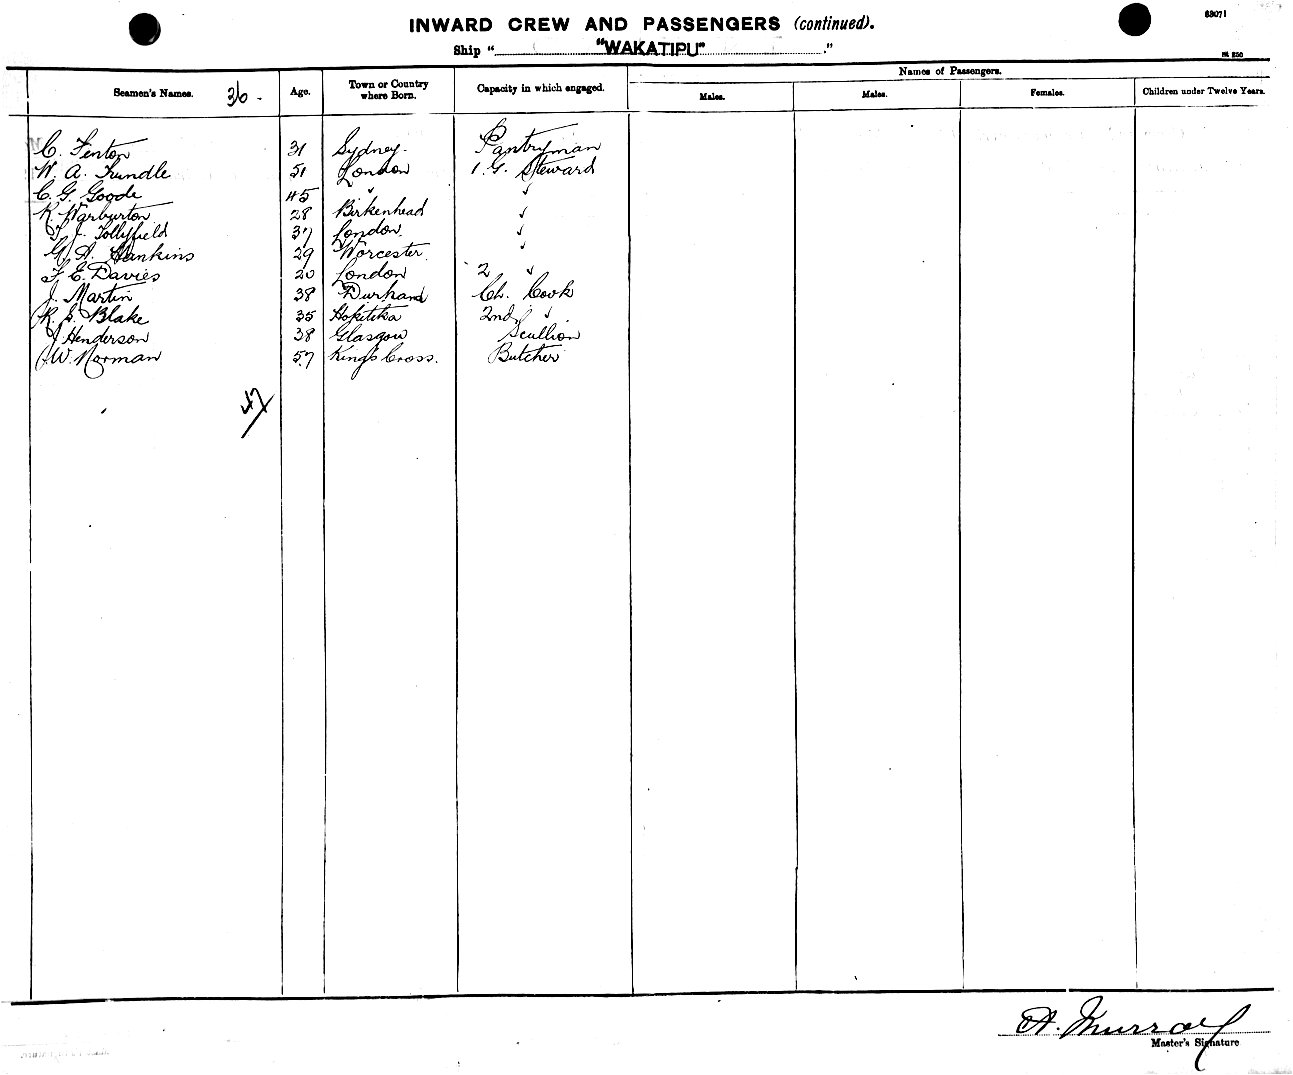 63071
INWARD CREW AND PASSENGERS (continued).
Ship " "WAKATIPU" ."
Seamen's Names. 36. Age. Town or Country where Born. Capacity in which engaged. Names of Passengers.
Males. Males. Females. Children under Twelve Years.
C. Fenton 31 Sydney. Pantryman
W. A. Trundle 51 London 1. G. Steward
C. G. Goode 45 " "
R. Warburton 28 Birkenhead "
T. J. Tollyfield 37 London. "
G. A. Hankins 29 Worcester "
F. E. Davies 20 London 2 "
J. Martin 38 Durham Ch. Cook
R. S. Blake 35 Hokitika 2nd "
J Henderson 38 Glasgow Scullion
J W. Norman 57 Kings Cross. Butcher
47
A. Murray
Master's Signature